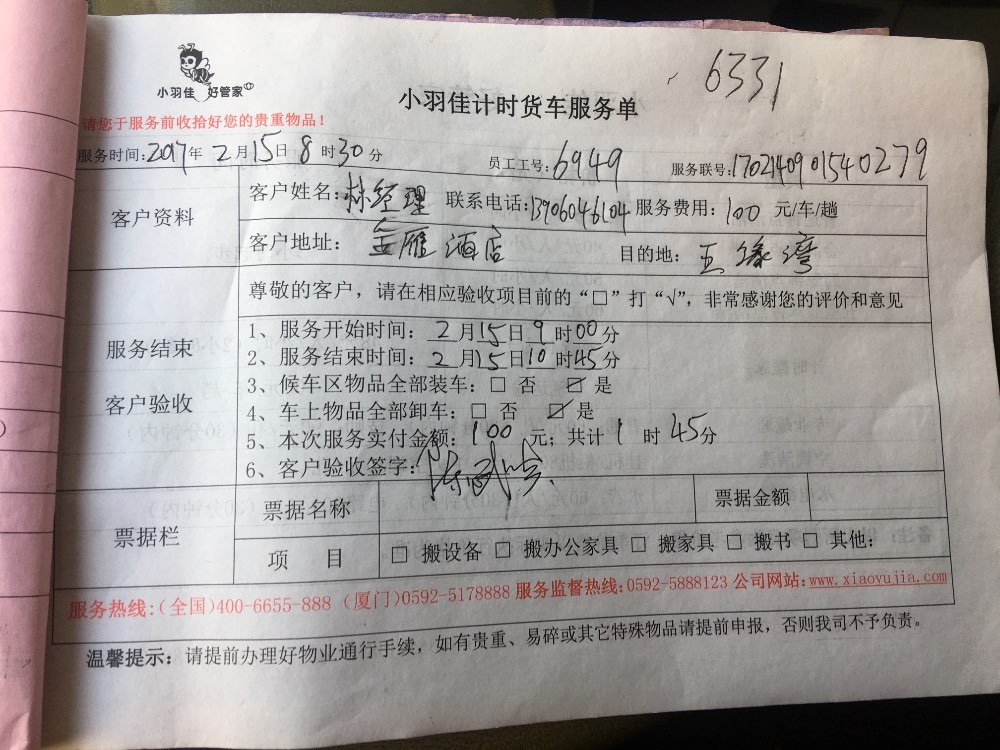 6331
小羽佳 好管家
小羽佳计时货车服务单
请您于服务前收拾好您的贵重物品！
服务时间：2017年 2月15日8时30分 员工工号：6949 服务联号：170214090154 0279
客户资料
客户姓名：林经理 联系电话：13906046104 服务费用：100 元/车/趟
客户地址：金雁酒店 目的地：五缘湾
服务结束
客户验收
尊敬的客户，请在相应验收项目前的“□”打“√”，非常感谢您的评价和意见
1、服务开始时间：2月15日9时00分
2、服务结束时间：2月15日10时45分
3、候车区物品全部装车：□ 否 ☑ 是
4、车上物品全部卸车：□ 否 ☑ 是
5、本次服务实付金额：100 元；共计1时45分
6、客户验收签字：
票据栏
票据名称 票据金额
项 目 □ 搬设备 □ 搬办公家具 □ 搬家具 □ 搬书 □ 其他：
服务热线：（全国）400-6655-888 （厦门）0592-5178888 服务监督热线：0592-5888123 公司网站：www.xiaoyujia.com
温馨提示：请提前办理好物业通行手续，如有贵重、易碎或其它特殊物品请提前申报，否则我司不予负责。